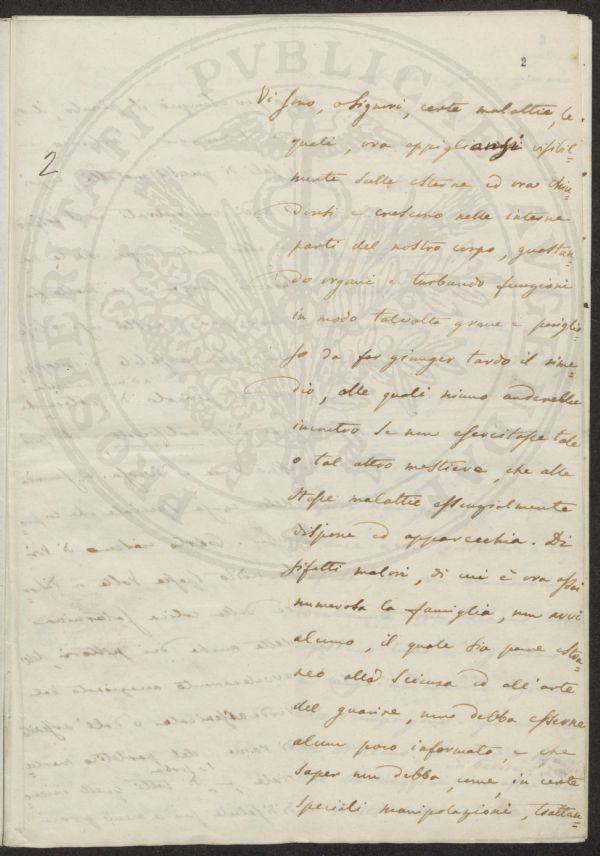 2
2
Vi sono, o Signori, certe malattie, le
quali, ora appigliansi visibil-
mente sulle esterne ed ora chiu-
donsi e crescono nelle interne
parti del nostro corpo, guastan-
do organi e turbando funzioni
in modo talvolta grave e periglio-
so da far giunger tardo il rime-
dio, alle quali niuno anderebbe
incontro se non esercitasse tale
o tal altro mestiere, che alle
stesse malattie essenzialmente
dispone ed apparecchia. Di
siffatti malori, di cui è ora assai
numerosa la famiglia, non avvi
alcuno, il quale sia pure estra-
neo alla Scienza ed all'arte
del guarire, non debba esserne
alcun poco informato, e che
saper non debba, come, in certe
speciali manipolazioni, trattan-
PROSPERITATI PVBLICAE